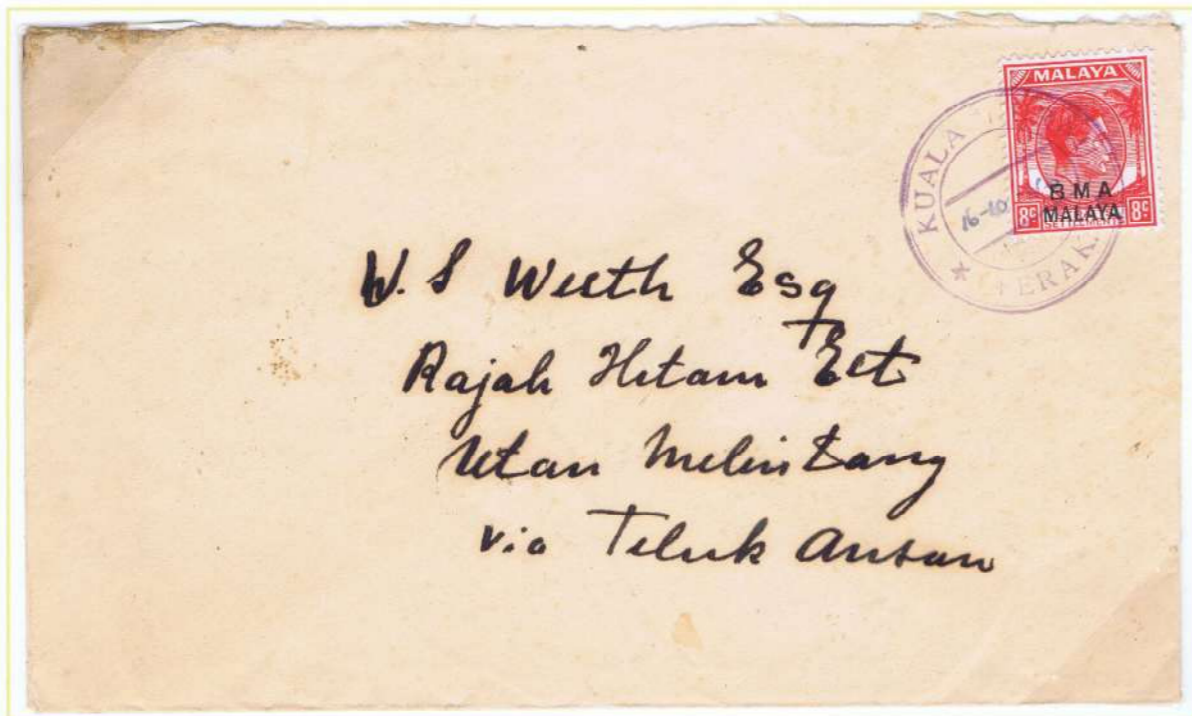 MALAYA
B M A
MALAYA
8c 8c
SETTLEMENTS
KUALA
16-10
* (PERAK)
W. S Weeth Esq
Rajah Hitam Est
Utan Melintang
via Teluk Anson